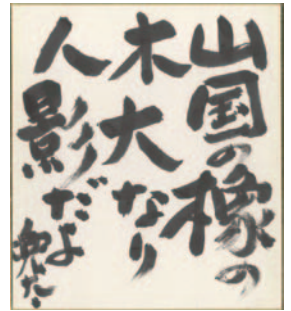 山国の橡の
木大なり
人影だよ
兜太